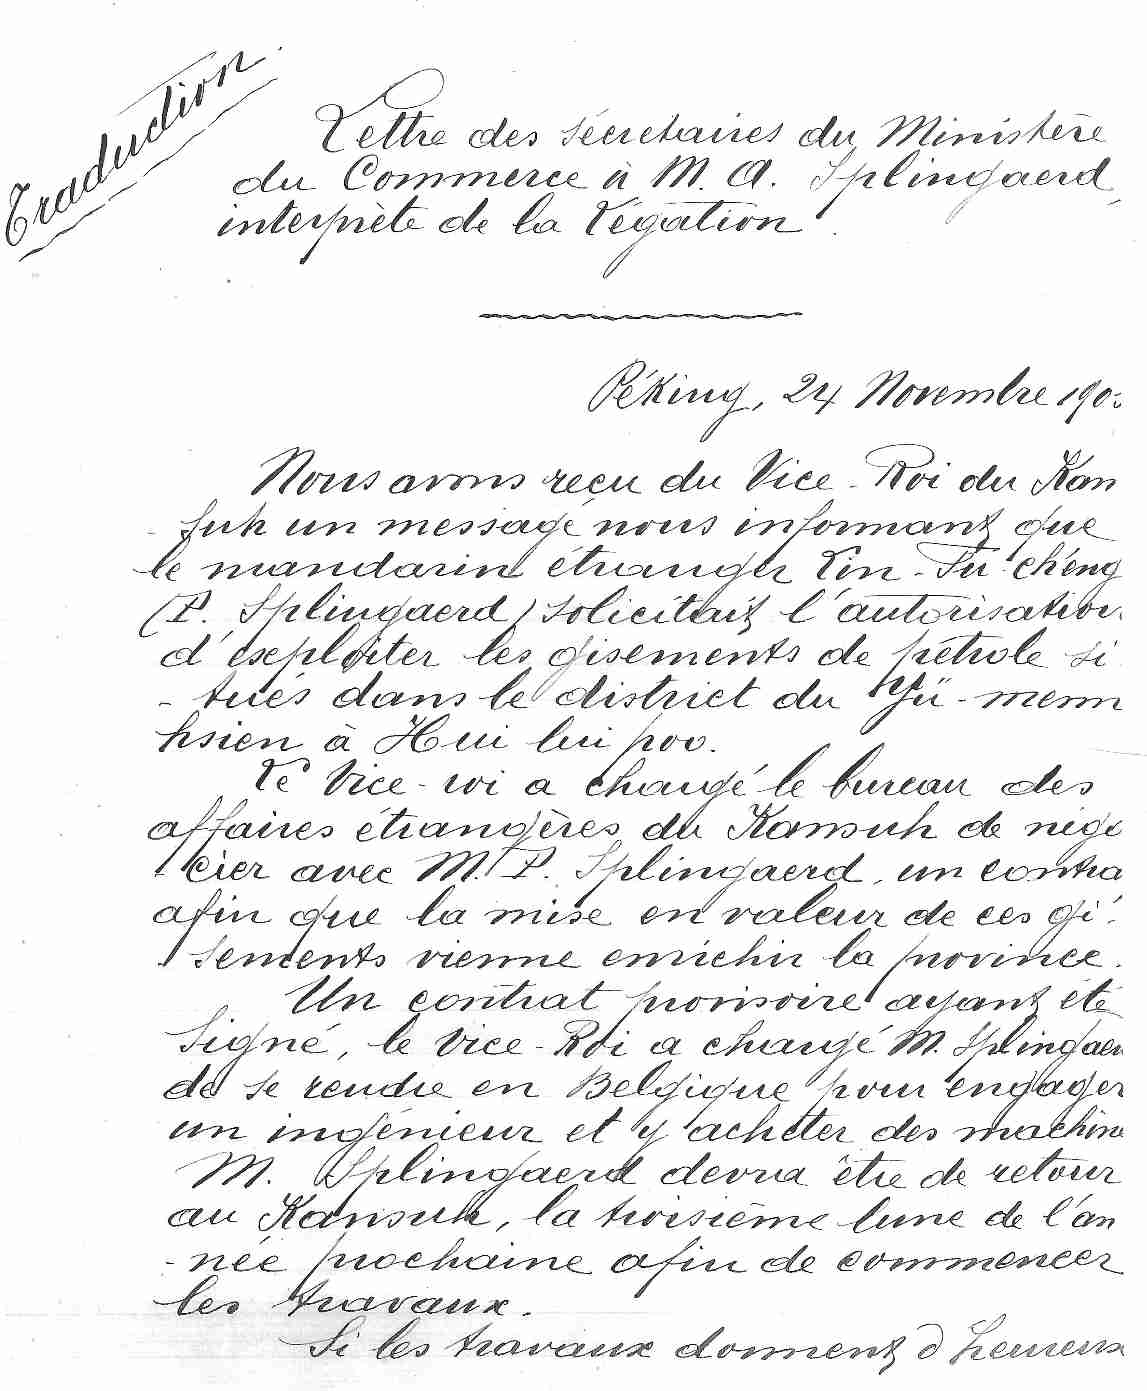 Traduction
Lettre des sécretaires du Ministère
du Commerce à M. A. Splingaerd,
interprète de la Légation.
Péking, 24 Novembre 190
Nous avons reçu du Vice-Roi du Kan
-suh un message nous informant que
le mandarin étranger Lin-Fu-chéng
(P. Splingaerd) solicitait l'autorisation
d'exploiter les gisements de pétrole si
-tués dans le district du Yü-menn
hsien à Hui hui poo.
Le Vice-roi a chargé le bureau des
affaires étrangères du Kansuh de négo
cier avec M. P. Splingaerd, un contra
afin que la mise en valeur de ces gi-
sements vienne enrichir la province.
Un contrat provisoire ayant été
signé, le Vice-Roi a chargé M. Splingaer
de se rendre en Belgique pour engager
un ingénieur et y acheter des machine
M. Splingaerd devra être de retour
au Kansuh, la troisième lune de l'an
-née prochaine afin de commencer
les travaux.
Si les travaux donnent d'heureux